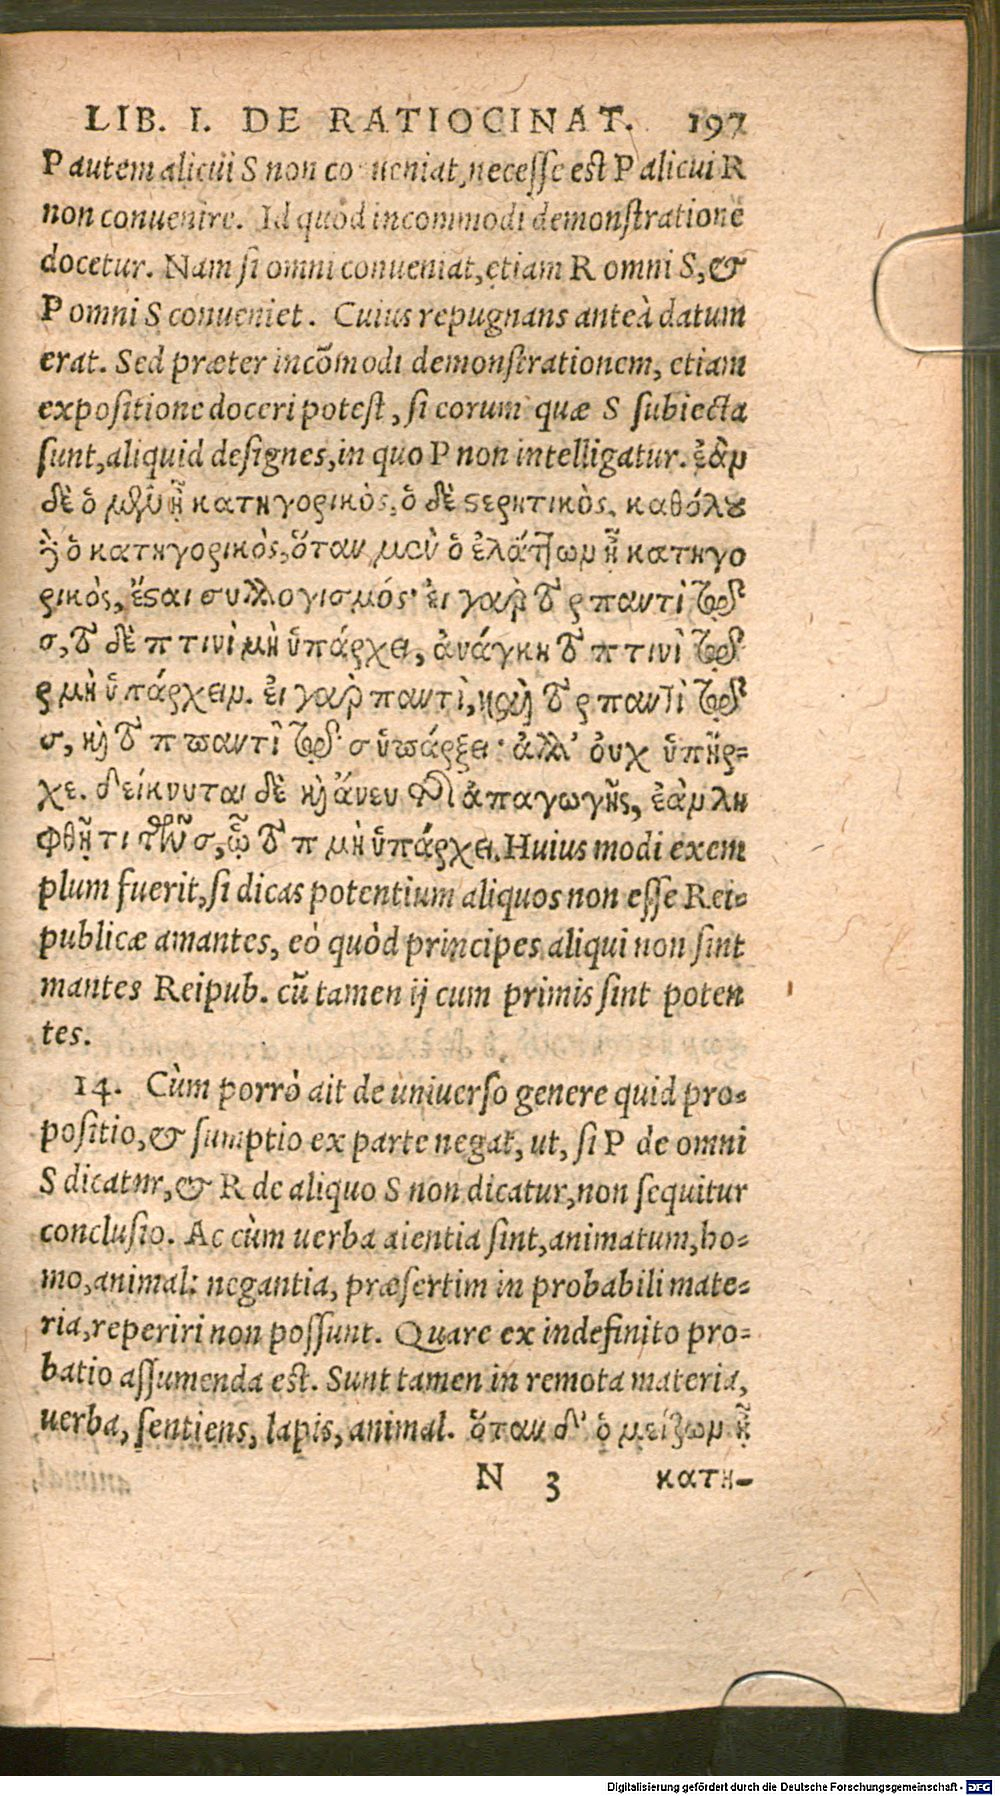 LIB. I. DE RATIOCINAT. 197
P autem alicui S non conueniat, necesse est P alicui R
non conuenire. Id quod incommodi demonstratione
docetur. Nam si omni conueniat, etiam R omni S, &
P omni S conueniet. Cuius repugnans anteà datum
erat. Sed præter incōmodi demonstrationem, etiam
expositione doceri potest, si eorum quæ S subiecta
sunt, aliquid designes, in quo P non intelligatur. ἐὰν
δὲ ὁ μὲν ᾖ κατηγορικὸς, ὁ δὲ στερητικὸς, καθόλου
δὲ ὁ κατηγορικὸς, ὅταν μὲν ὁ ἐλάττων ᾖ κατηγο
ρικὸς, ἔσται συλλογισμός· εἰ γὰρ τὸ ρ παντὶ τῷ
σ, τὸ δὲ π τινὶ μὴ ὑπάρχει, ἀνάγκη τὸ π τινὶ τῷ
ρ μὴ ὑπάρχειν. εἰ γὰρ παντὶ, καὶ τὸ ρ παντὶ τῷ
σ, καὶ τὸ π παντὶ τῷ σ ὑπάρξει· ἀλλ' οὐχ ὑπῆρ-
χε. δείκνυται δὲ καὶ ἄνευ τῆς ἀπαγωγῆς, ἐὰν λη
φθῇ τι τῶν σ, ᾧ τὸ π μὴ ὑπάρχει. Huius modi exem
plum fuerit, si dicas potentium aliquos non esse Rei-
publicæ amantes, eò quòd principes aliqui non sint
mantes Reipub. cū tamen ij cum primis sint poten
tes.
14. Cùm porrò ait de uniuerso genere quid pro-
positio, & sumptio ex parte negat, ut, si P de omni
S dicatur, & R de aliquo S non dicatur, non sequitur
conclusio. Ac cùm uerba aientia sint, animatum, ho-
mo, animal: negantia, præsertim in probabili mate-
ria, reperiri non possunt. Quare ex indefinito pro-
batio assumenda est. Sunt tamen in remota materia,
uerba, sentiens, lapis, animal. ὅταν δ' ὁ μείζων ᾖ
N 3 κατη-
Digitalisierung gefördert durch die Deutsche Forschungsgemeinschaft - DFG